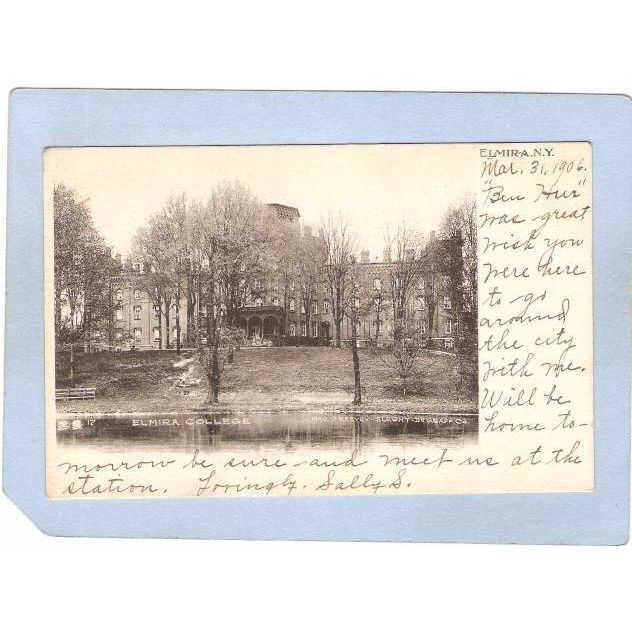 ELMIRA, N.Y.
Mar. 31, 1906.
"Ben Hur"
was great
wish you
were here
to go
around
the city
with me.
Will be
home to-
morrow be sure and meet us at the
station. Lovingly, Sally S.
17 ELMIRA COLLEGE